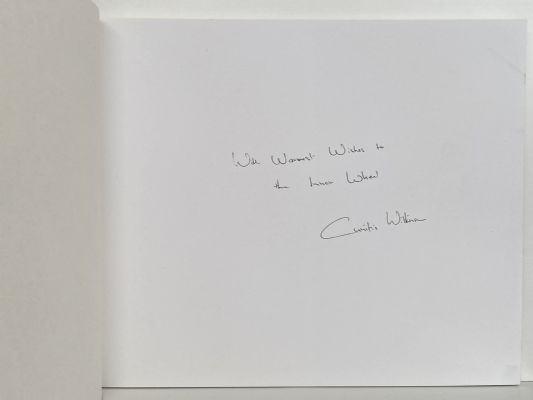 With Warmest Wishes to
the Inner Wheel
Curtis